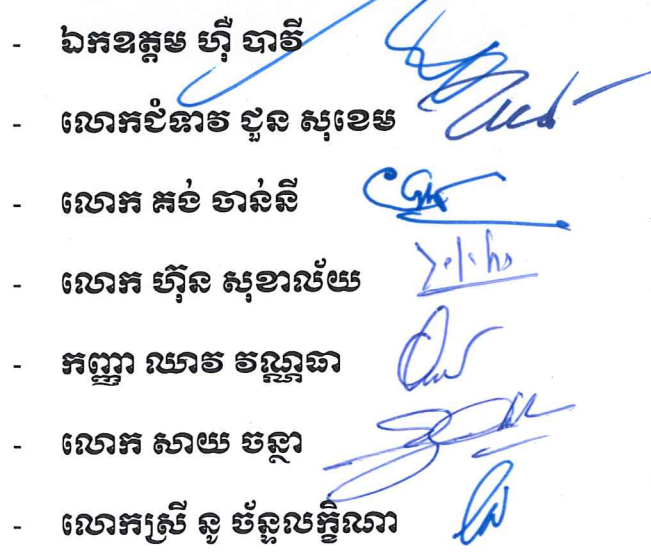 - ឯកឧត្តម ហ៊ឺ បាវី
- លោកជំទាវ ជួន សុខេម
- លោក គង់ ចាន់នី
- លោក ហ៊ុន សុខាល័យ
- កញ្ញា ឈាវ វណ្ណធា
- លោក សាយ ចន្ថា
- លោកស្រី នូ ច័ន្ទលក្ខិណា